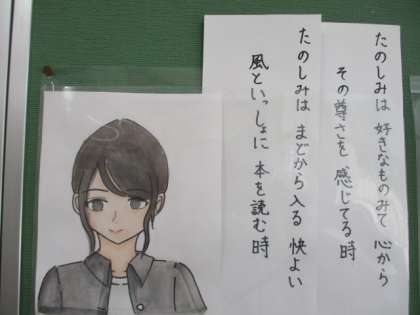 たのしみは 好きなものみて 心から
その尊さを 感じてる時
たのしみは まどから入る 快よい
風といっしょに 本を読む時